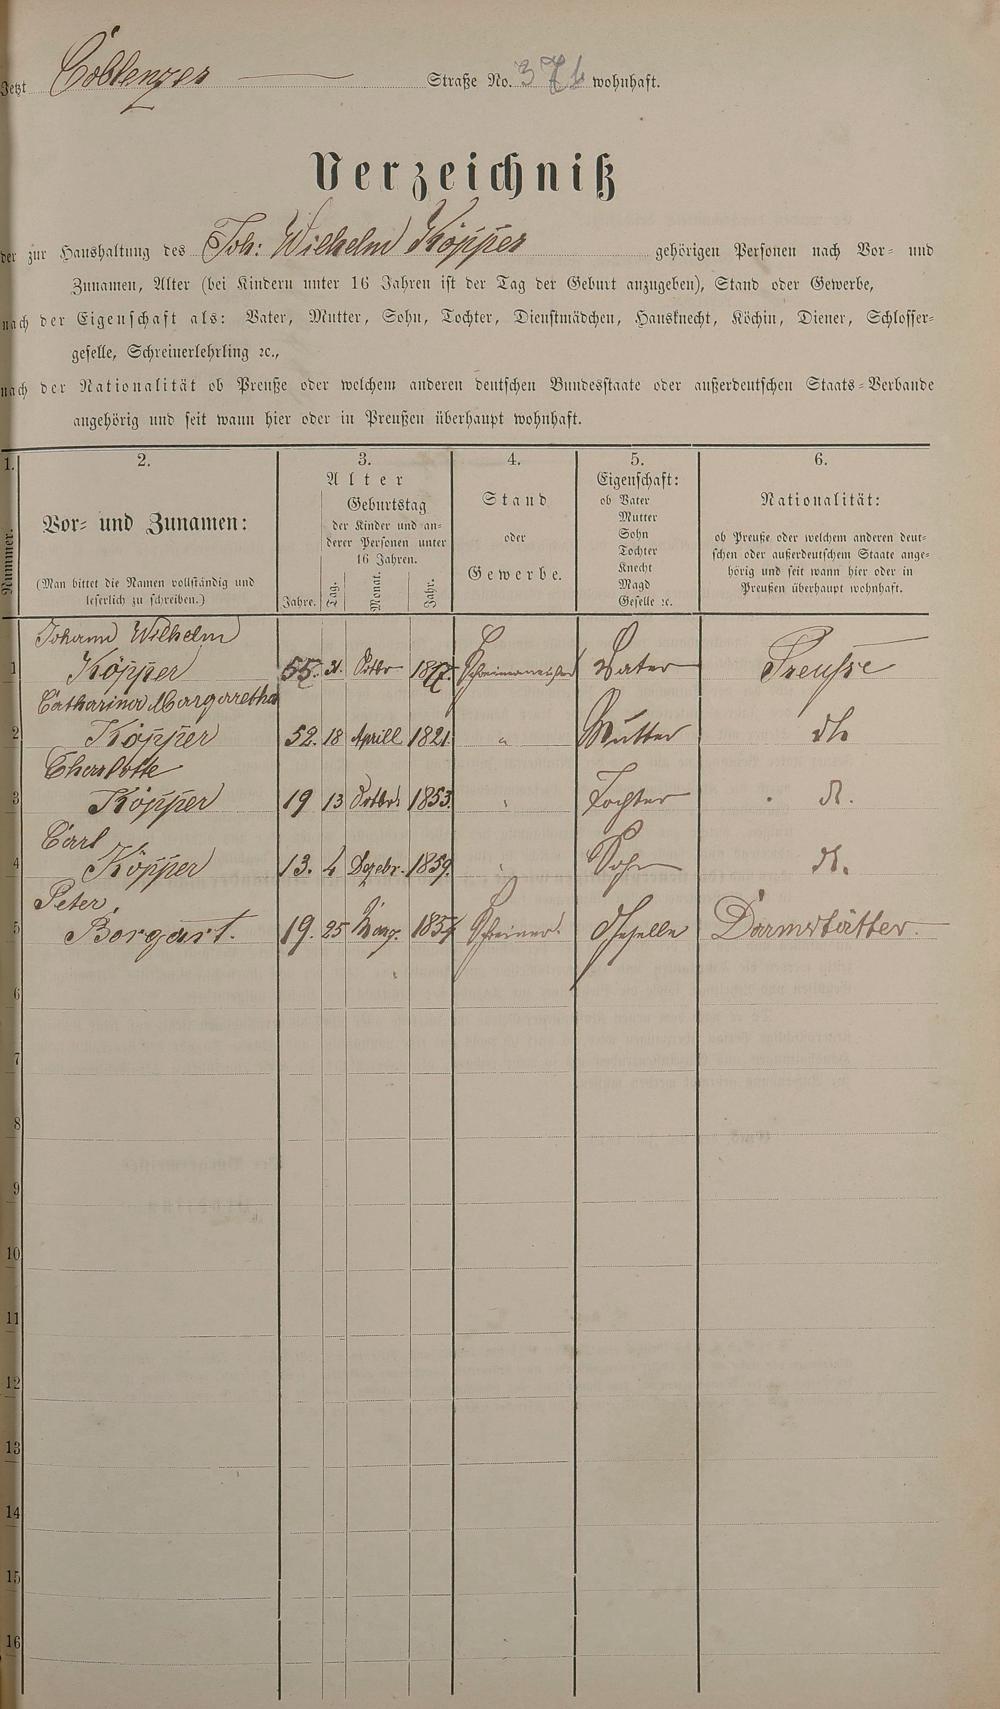 Jetzt Coblenzer Straße No. 37b wohnhaft.
Verzeichniß
der zur Haushaltung des Joh: Wilhelm Köpper gehörigen Personen nach Vor- und
Zunamen, Alter (bei Kindern unter 16 Jahren ist der Tag der Geburt anzugeben), Stand oder Gewerbe,
nach der Eigenschaft als: Vater, Mutter, Sohn, Tochter, Dienstmädchen, Hausknecht, Köchin, Diener, Schlosser-
geselle, Schreinerlehrling ꝛc.,
nach der Nationalität ob Preuße oder welchem anderen deutschen Bundesstaate oder außerdeutschen Staats-Verbande
angehörig und seit wann hier oder in Preußen überhaupt wohnhaft.
1. 2. 3. 4. 5. 6.
Nummer.
Vor- und Zunamen:
(Man bittet die Namen vollständig und
leserlich zu schreiben.)
Alter
Geburtstag
der Kinder und an-
derer Personen unter
16 Jahren.
Jahre. Tag. Monat. Jahr.
Stand
oder
Gewerbe.
Eigenschaft:
ob Vater
Mutter
Sohn
Tochter
Knecht
Magd
Geselle ꝛc.
Nationalität:
ob Preuße oder welchem anderen deut-
schen oder außerdeutschem Staate ange-
hörig und seit wann hier oder in
Preußen überhaupt wohnhaft.
Johann Wilhelm
1 Köpper 55. 21. Octbr 1817. Schreinermeister Vater Preuße
Catharina Margaretha
2 Köpper 52. 18 Aprill 1821. " Mutter do
Charlotte
3 Köpper 19 13 Octbr. 1853. " Tochter do.
Carl
4 Köpper 13. 4 Dezebr. 1859. " Sohn do.
Peter
5 Borgart. 19. 25 März. 1854 Schreiner Geselle Darmstätter.
6
7
8
9
10
11
12
13
14
15
16